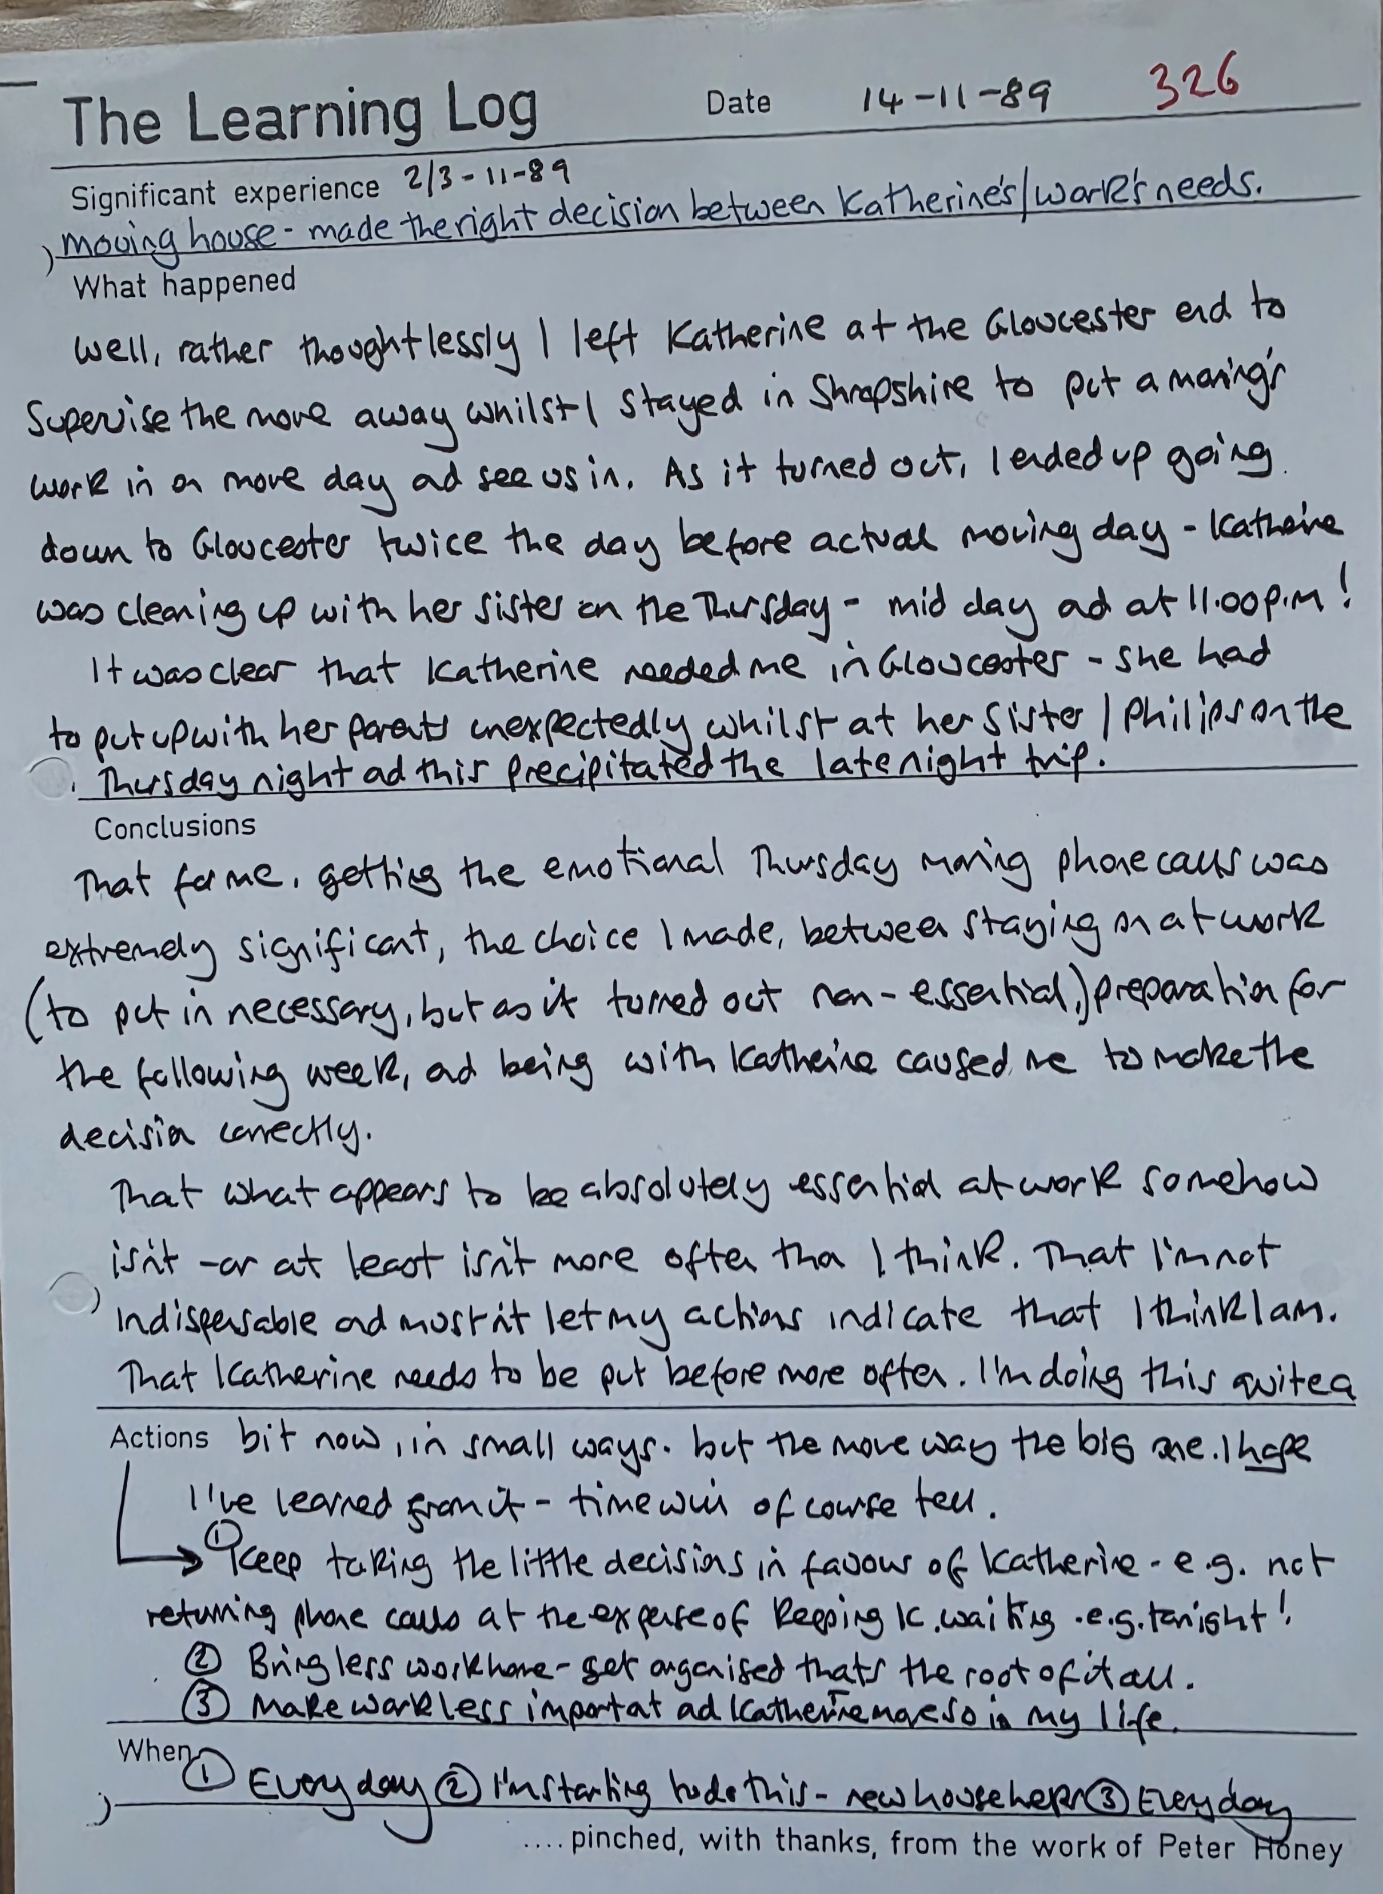 The Learning Log Date 14-11-89 326
Significant experience 2/3-11-89
moving house - made the right decision between Katherine's/work's needs.
What happened
Well, rather thoughtlessly I left Katherine at the Gloucester end to
supervise the move away whilst I stayed in Shropshire to put a morning's
work in on move day and see us in. As it turned out, I ended up going
down to Gloucester twice the day before actual moving day - Katherine
was cleaning up with her sister on the Thursday - mid day and at 11.00p.m!
It was clear that Katherine needed me in Gloucester - she had
to put up with her parents unexpectedly whilst at her sister/Philips on the
Thursday night and this precipitated the late night trip.
Conclusions
That for me, getting the emotional Thursday morning phone calls was
extremely significant, the choice I made, between staying on at work
(to put in necessary, but as it turned out non-essential,) preparation for
the following week, and being with Katherine caused me to make the
decision correctly.
That what appears to be absolutely essential at work somehow
isn't - or at least isn't more often than I think. That I'm not
indispensable and mustn't let my actions indicate that I think I am.
That Katherine needs to be put before more often. I'm doing this quite a
Actions bit now, in small ways. but the move way the big one. I hope
I've learned from it - time will of course tell.
① Keep taking the little decisions in favour of Katherine - e.g. not
returning phone calls at the expense of keeping K. waiting .e.g. tonight!
② Bring less work home - get organised thats the root of it all.
③ Make work less important and Katherine more so in my life.
When ① Every day ② I'm starting to do this - new house helps ③ Every day
.... pinched, with thanks, from the work of Peter Honey